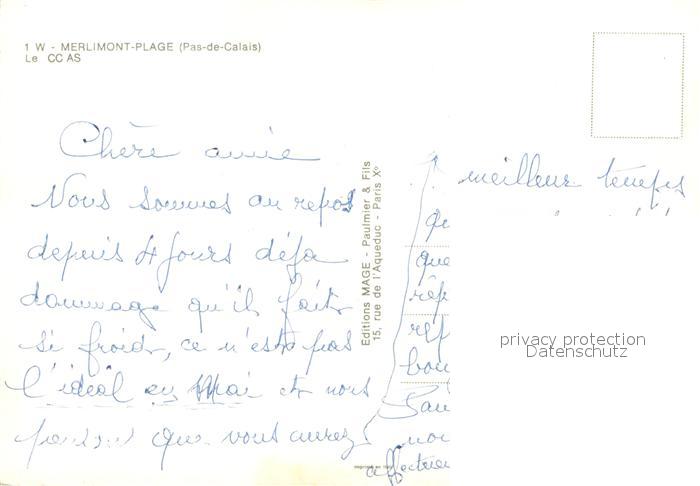 1 W - MERLIMONT-PLAGE (Pas-de-Calais)
Le CC AS
Chère amie
Nous sommes au repos
depuis 4 jours déja
dommage qu'il fait
si froid, ce n'est pas
l'idéal en Mai et nous
pensons que vous aurez
Editions MAGE - Paulmier & Fils
15, rue de l'Aqueduc - Paris Xº
meilleur temps
que
rép
bon
affectueu
privacy protection
Datenschutz